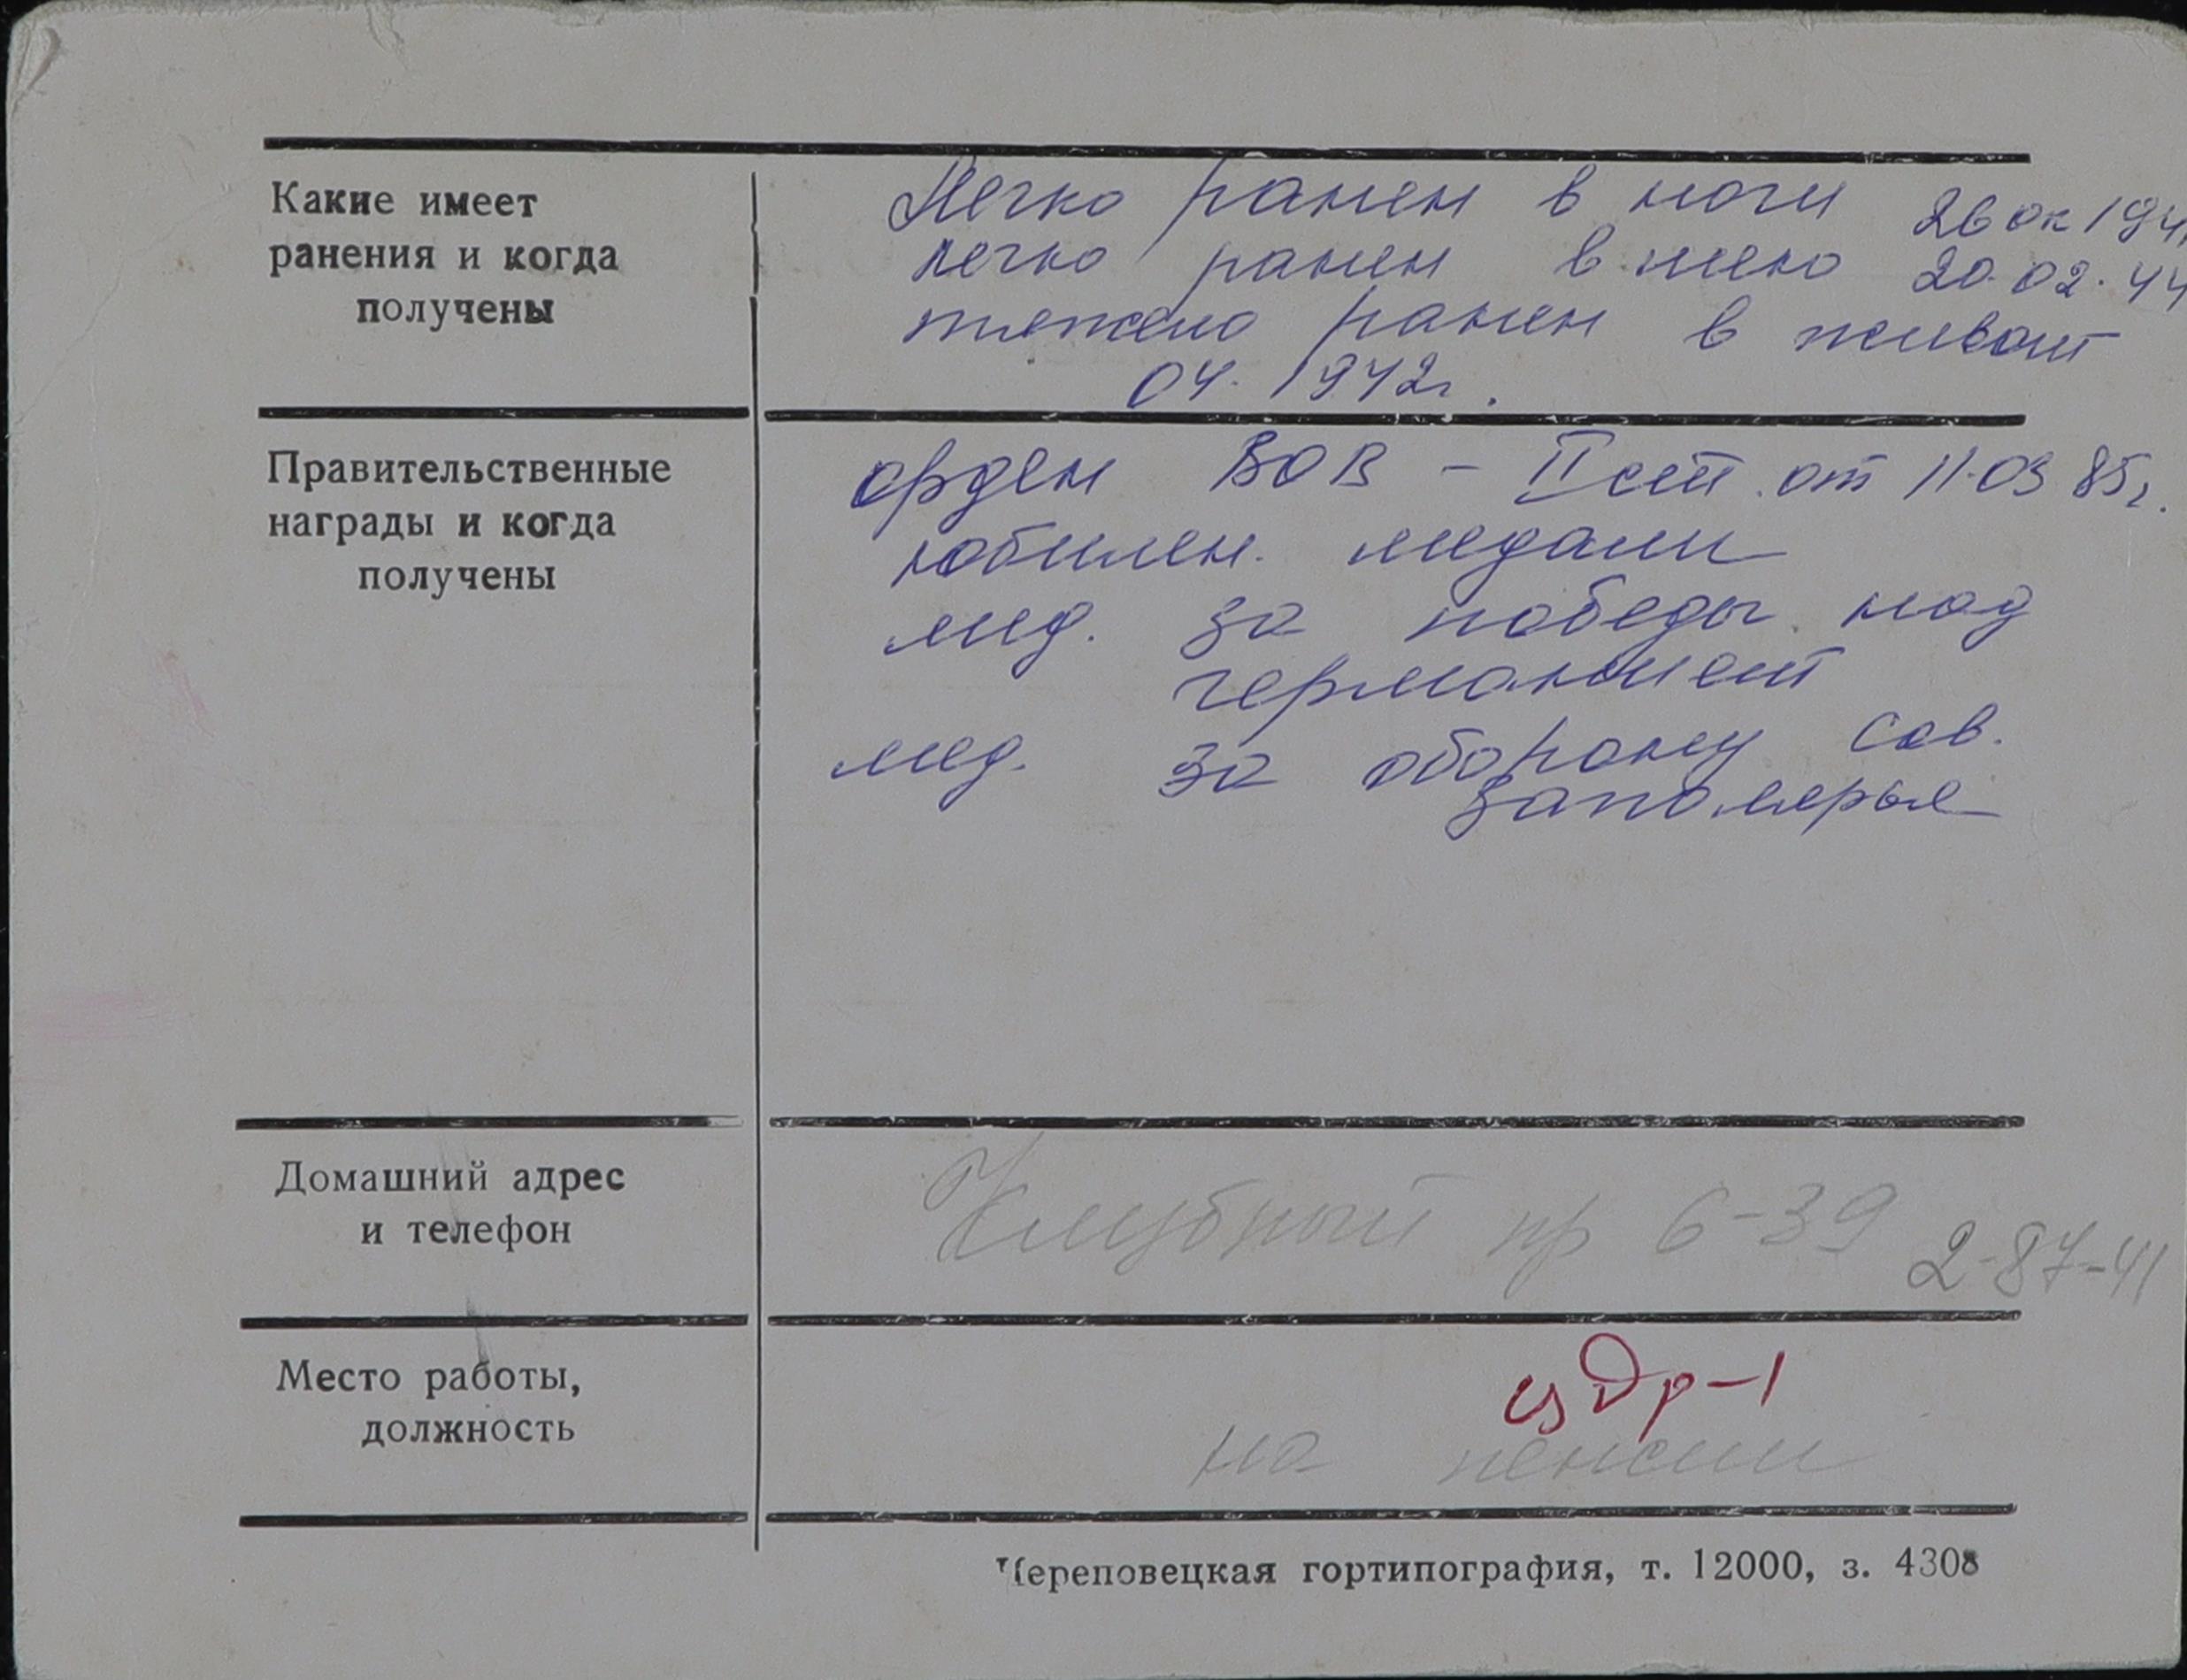 Какие имеет
ранения и когда
получены
Легко ранен в ноги 26 ок 194
легко ранен в шею 20.02.44
тяжело ранен в живот
04. 1942г.
Правительственные
награды и когда
получены
орден ВОВ - II степ. от 11.03 85г.
юбилен. медали
мед. за победы над
германией
мед. за оборону сов.
заполярья
Домашний адрес
и телефон
Клубный пр 6-39 2-87-41
Место работы,
должность
на пенсии
Череповецкая гортипография, т. 12000, з. 4308